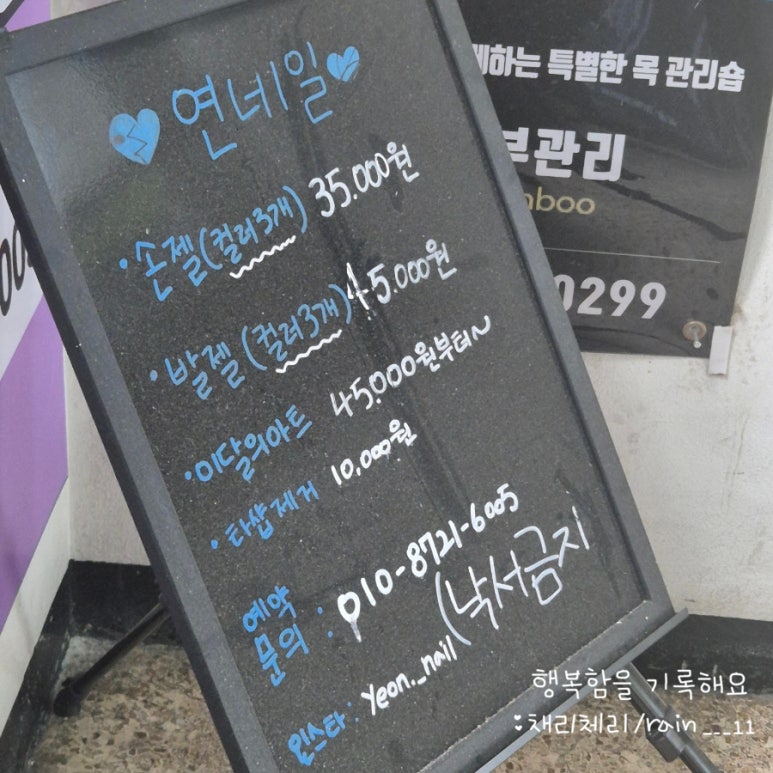 연네일
·손젤(컬러3개) 35.000원
·발젤(컬러3개) 45.000원
·이달의아트 45.000원부터~
·타샵제거 10,000원
예약
문의 : 010-8721-6005
(낙서금지
인스타 : yeon._nail
께하는 특별한 목 관리숍
부관리
mboo
0299
행복함을 기록해요
:채리체리/rain___11